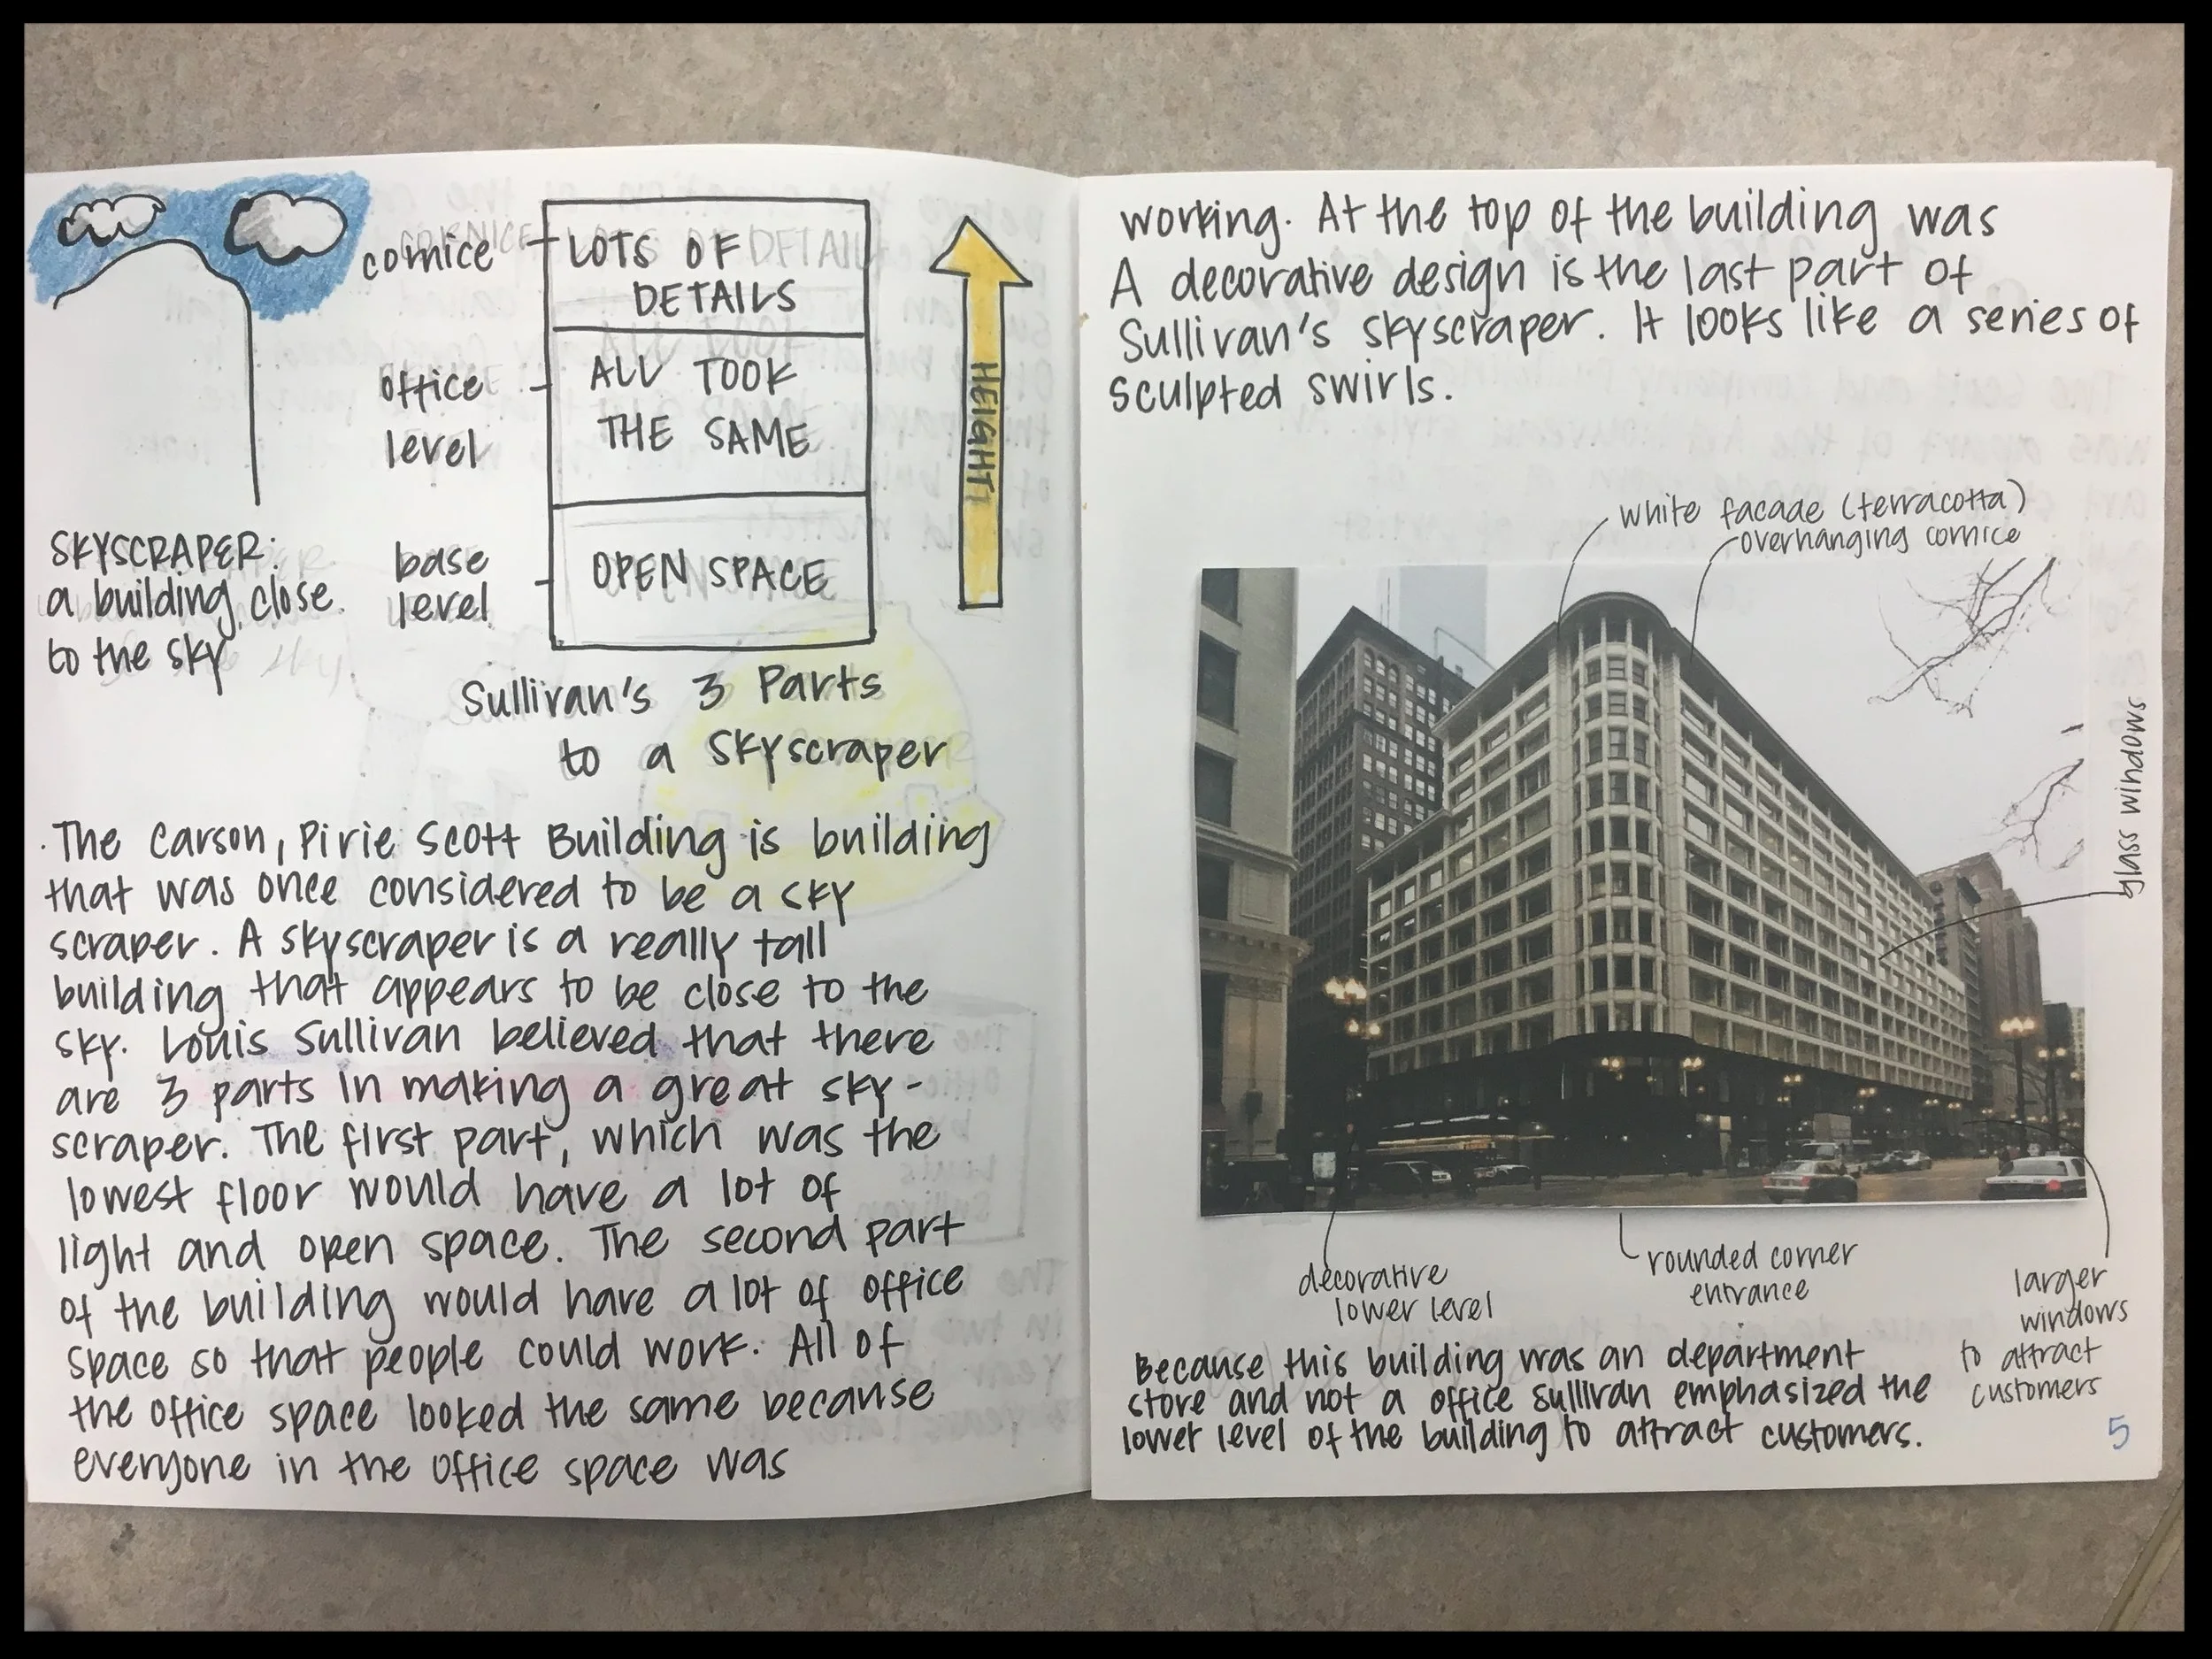 cornice
LOTS OF
DETAILS
office
level
ALL TOOK
THE SAME
base
level
OPEN SPACE
HEIGHT
SKYSCRAPER:
a building close
to the sky
Sullivan's 3 Parts
to a Skyscraper
The Carson, Pirie Scott Building is building
that was once considered to be a sky
scraper. A skyscraper is a really tall
building that appears to be close to the
sky. Louis Sullivan believed that there
are 3 parts in making a great sky-
scraper. The first part, which was the
lowest floor would have a lot of
light and open space. The second part
of the building would have a lot of office
space so that people could work. All of
the office space looked the same because
everyone in the office space was
working. At the top of the building was
A decorative design is the last part of
Sullivan's skyscraper. It looks like a series of
sculpted swirls.
white facade (terracotta)
overhanging cornice
glass windows
decorative
lower level
rounded corner
entrance
larger
windows
to attract
customers
Because this building was an department
store and not a office Sullivan emphasized the
lower level of the building to attract customers.
5